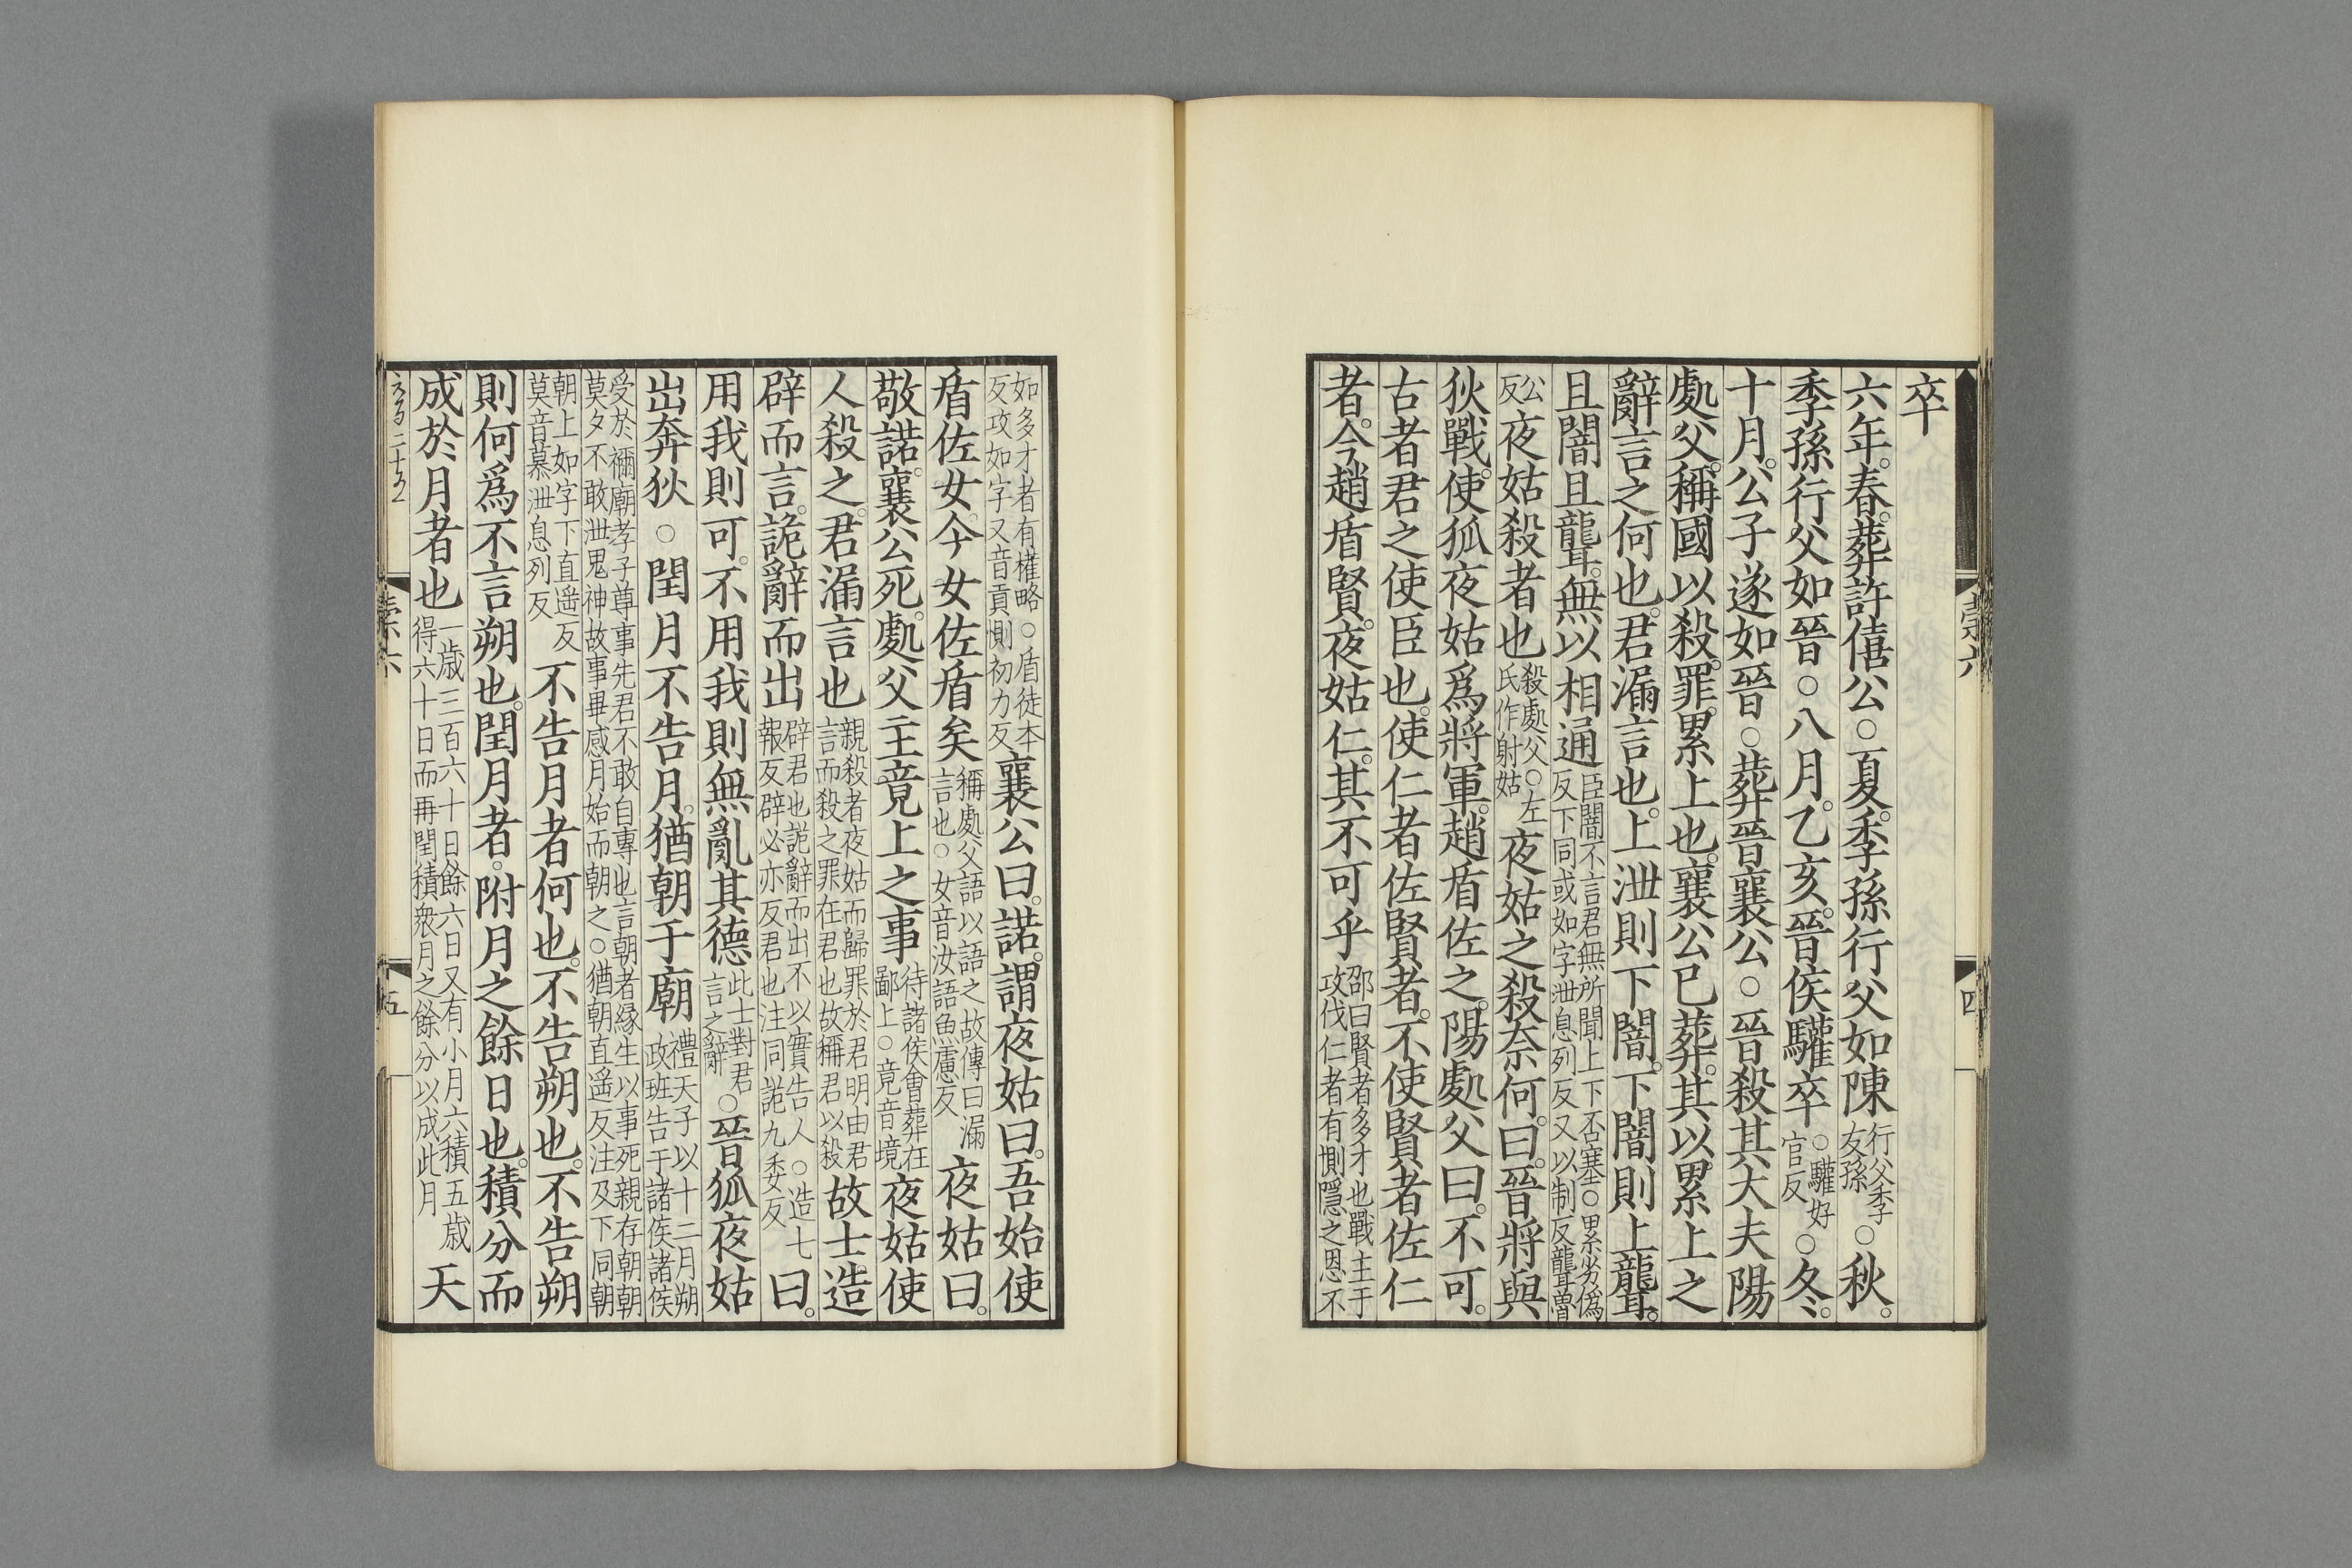 卒
六年。春。葬許僖公○夏。季孫行父如陳行父季友孫○秋。
季孫行父如晉○八月。乙亥。晉侯驩卒○驩好官反○冬。
十月。公子遂如晉○葬晉襄公○晉殺其大夫陽
處父。稱國以殺。罪。累上也。襄公已葬。其以累上之
辭言之何也。君漏言也。上泄則下闇。下闇則上聾。
且闇且聾。無以相通臣闇不言君無所聞上下否塞○累劣僞反下同或如字泄息列反又以制反聾魯
公反夜姑殺者也殺處父○左氏作射姑夜姑之殺奈何。曰。晉將與
狄戰。使狐夜姑爲將軍。趙盾佐之。陽處父曰。不可。
古者君之使臣也。使仁者佐賢者。不使賢者佐仁
者。今趙盾賢。夜姑仁。其不可乎邵曰賢者多才也戰主于攻伐仁者有惻隱之恩不
如多才者有權略○盾徒本反攻如字又音貢惻初力反襄公曰。諾。謂夜姑曰。吾始使
盾佐女。今女佐盾矣稱處父語以語之故傳曰漏言也○女音汝語魚慮反夜姑曰。
敬諾。襄公死。處父主竟上之事待諸侯會葬在鄙上○竟音境夜姑使
人殺之。君漏言也親殺者夜姑而歸罪於君明由君言而殺之罪在君也故稱君以殺故士。造
辟而言。詭辭而出辟君也詭辭而出不以實告人○造七報反辟必亦反君也注同詭九委反曰。
用我則可。不用我則無亂其德此士對君言之辭○晉狐夜姑
出奔狄○閏月不告月。猶朝于廟禮天子以十二月朔政班告于諸侯諸侯
受於禰廟孝子尊事先君不敢自專也言朝者緣生以事死親存朝朝莫夕不敢泄鬼神故事畢感月始而朝之○猶朝直遥反注及下同朝
朝上如字下直遥反莫音慕泄息列反不告月者何也。不告朔也。不告朔
則何爲不言朔也。閏月者。附月之餘日也。積分而
成於月者也一歲三百六十日餘六日又有小月六積五歲得六十日而再閏積衆月之餘分以成此月天
崇六
四
崇六
五